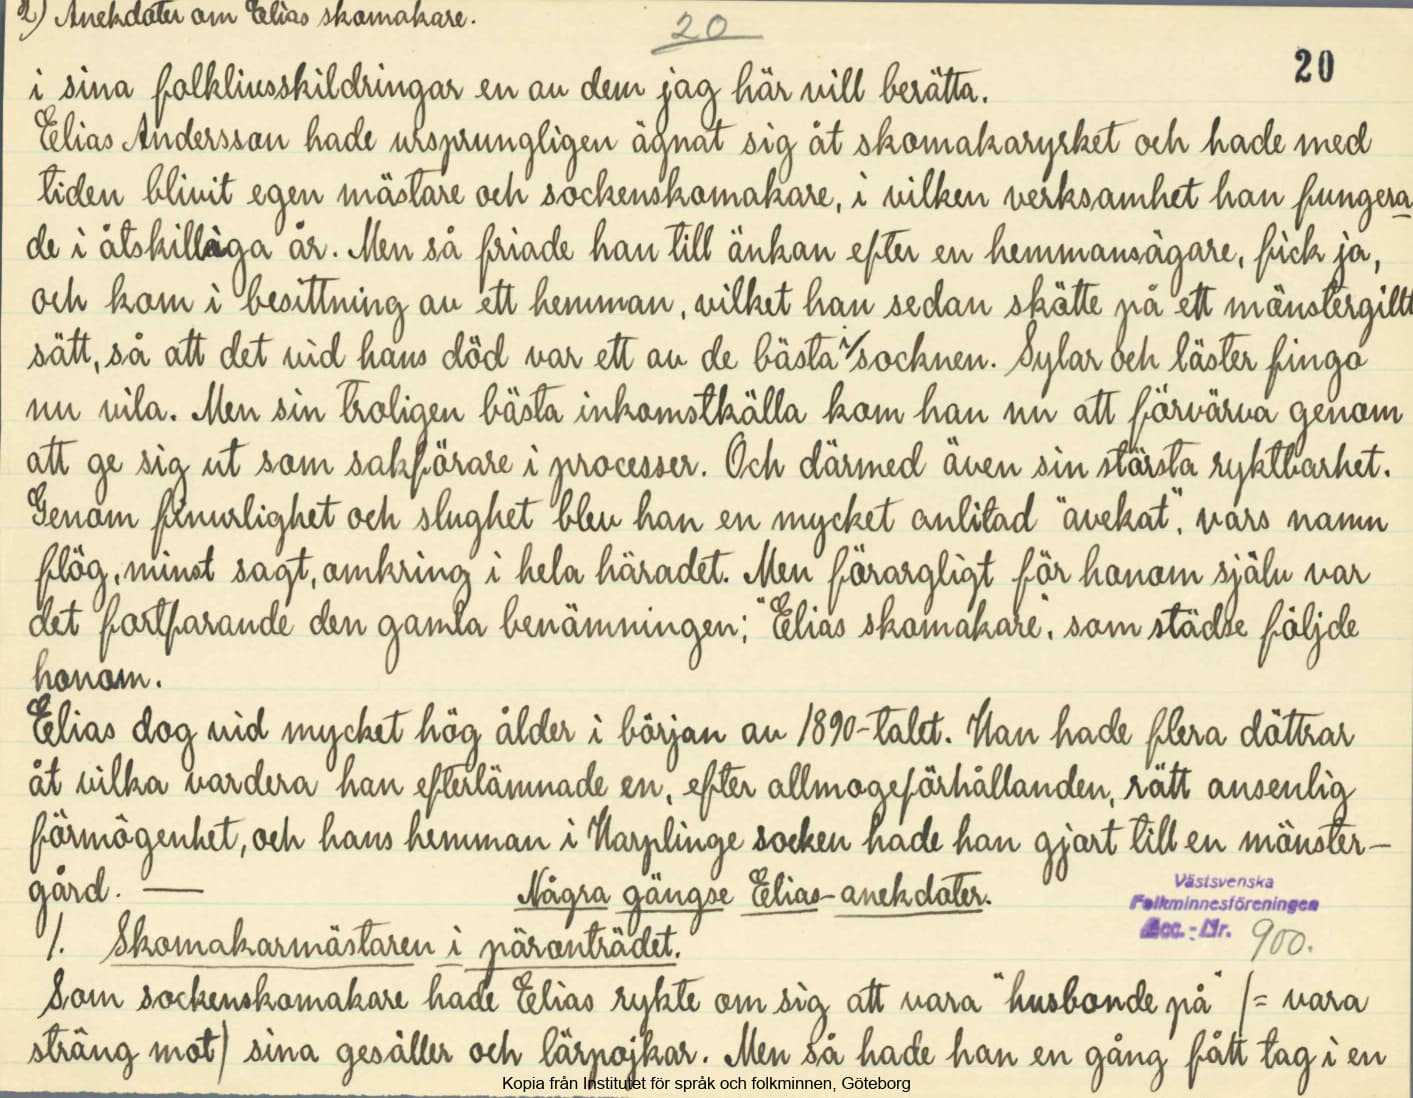 2) Anekdoter om Elias skomakare.
20
20
i sina folklivsskildringar en av dem jag här vill berätta.
Elias Andersson hade ursprungligen ägnat sig åt skomakaryrket och hade med
tiden blivit egen mästare och sockenskomakare, i vilken verksamhet han fungera
de i åtskilliga år. Men så friade han till änkan efter en hemmansägare, fick ja,
och kom i besittning av ett hemman, vilket han sedan skötte på ett mönstergillt
sätt, så att det vid hans död var ett av de bästa i socknen. Sylar och läster fingo
nu vila. Men sin troligen bästa inkomstkälla kom han nu att förvärva genom
att ge sig ut som sakförare i processer. Och därmed även sin största ryktbarhet.
Genom finurlighet och slughet blev han en mycket anlitad "avekat", vars namn
flög, minst sagt, omkring i hela häradet. Men förargligt för honom själv var
det fortfarande den gamla benämningen; "Elias skomakare", som städse följde
honom.
Elias dog vid mycket hög ålder i början av 1890-talet. Han hade flera döttrar
åt vilka vardera han efterlämnade en, efter allmogeförhållanden, rätt ansenlig
förmögenhet, och hans hemman i Harplinge socken hade han gjort till en mönster-
gård. — Några gängse Elias-anekdoter.
Västsvenska
Folkminnesföreningen
Acc.-Nr. 900.
1. Skomakarmästaren i päronträdet.
Som sockenskomakare hade Elias rykte om sig att vara "husbonde på" (= vara
sträng mot) sina gesäller och lärpojkar. Men så hade han en gång fått tag i en
Kopia från Institutet för språk och folkminnen, Göteborg